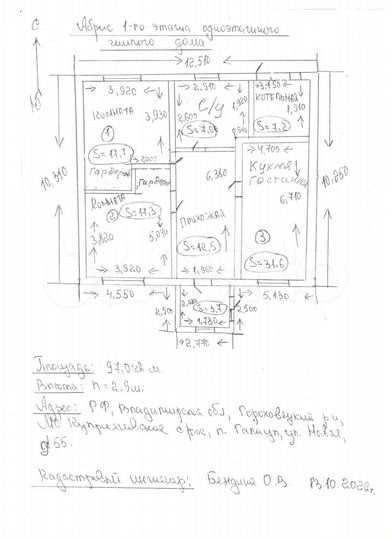 С
Абрис 1-го этажа одноэтажного
жилого дома
12,510
3,920
2,510
3,750
Комната
3,930
С/у
2,600
Котельная
1,910
①
S=17,7
S=7,2
2,000
4,700
Гардероб
Гардероб
6,380
Кухня
Гостиная
6,710
10,310
10,260
Комната
②
S=17,3
Прихожая
3,820
5,010
S=12,5
③
S=31,6
3,920
1,960
4,550
5,130
S=3,7
2,500
1,780
2,770
Площадь: 97,0 кв м.
Высота: h=2.9м.
Адрес: РФ, Владимирская обл, Гороховецкий р-н,
МО Куприяновское с/пос, п. Галицы, ул. Новая,
д 55.
Кадастровый инженер: Бендина О.В. 13.10.2022г.